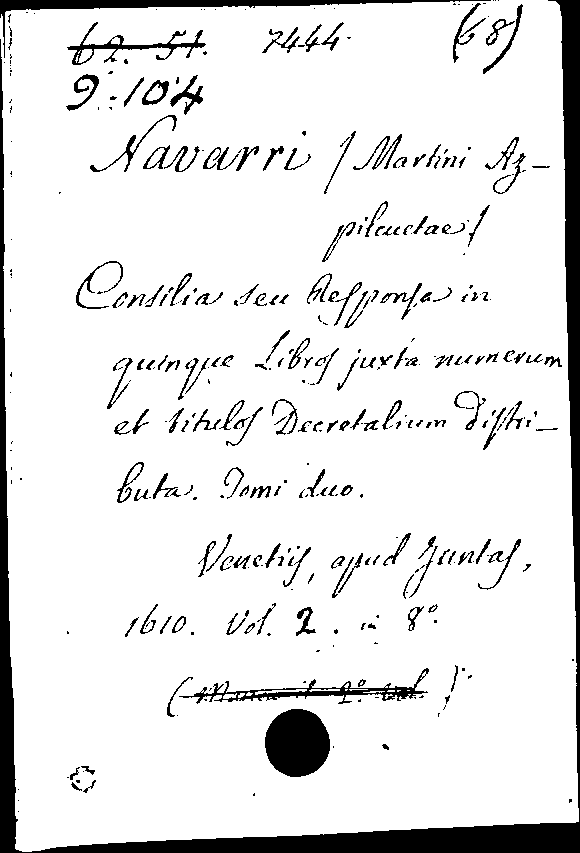 62. 51. 7444. (68)
9.-104
Navarri / Martini Az-
pilcuetae /
Consilia seu Responsa in
quinque Libros juxta numerum
et titulos Decretalium distri-
buta. Tomi duo.
Venetiis, apud Juntas,
1610. Vol. 2. in 8.º
(Manca il 2.º vol.)